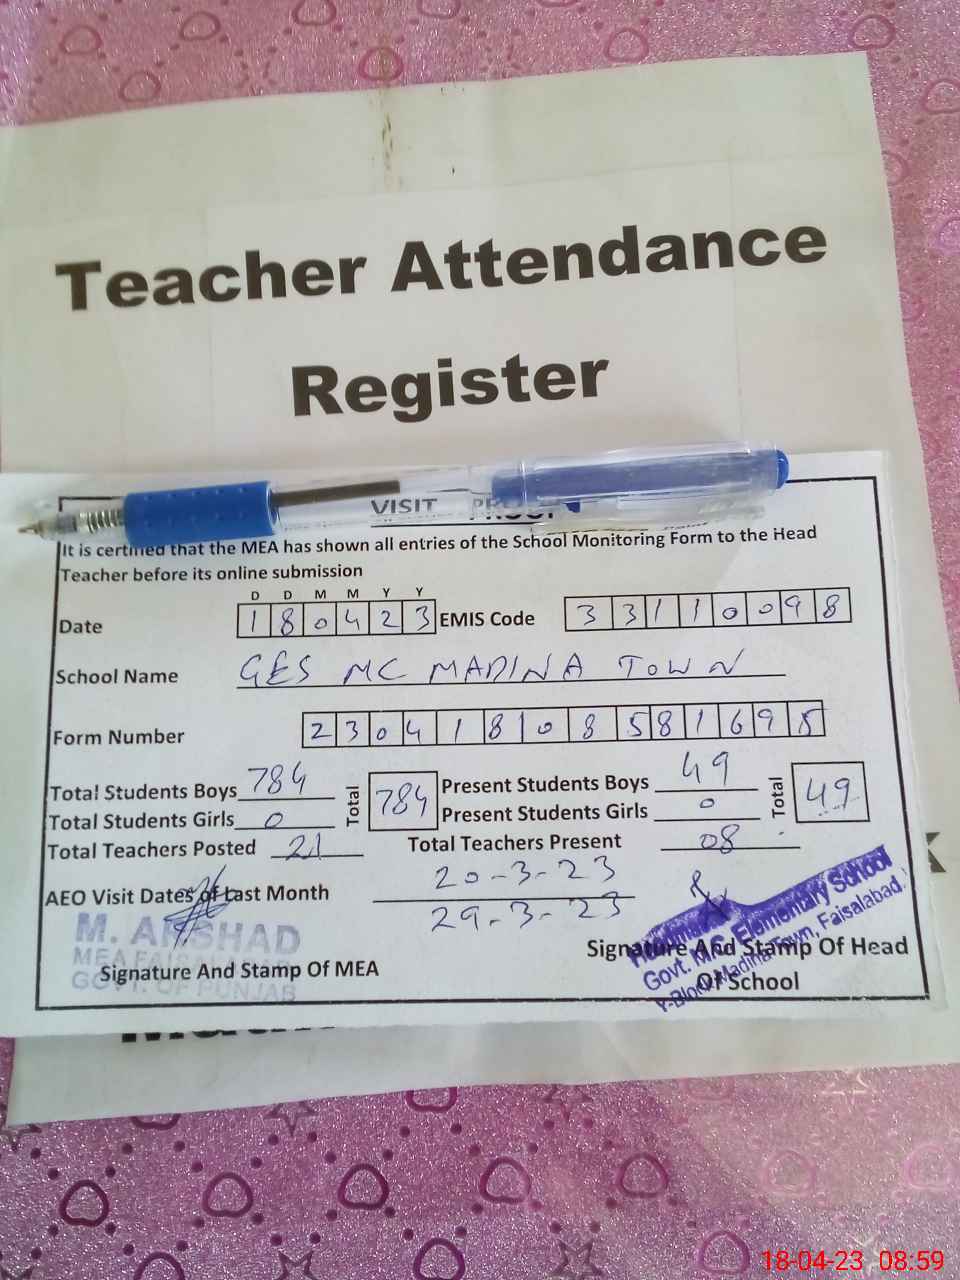 Teacher Attendance
Register
VISIT PROOF
It is certified that the MEA has shown all entries of the School Monitoring Form to the Head
Teacher before its online submission
D D M M Y Y
Date 180423 EMIS Code 33110098
School Name GES MC MADINA TOWN
Form Number 2304180858169
Total Students Boys 784 Total 784 Present Students Boys 49 Total 49
Total Students Girls 0 Present Students Girls 0
Total Teachers Posted 21 Total Teachers Present 08
AEO Visit Dates of Last Month 20-3-23
29-3-23
M. ARSHAD
MEA FAISALABAD
GOVT. OF PUNJAB
Signature And Stamp Of MEA
Govt. M.C. Elementary School
Y-Block Madina Town, Faisalabad.
Signature And Stamp Of Head
Of School
18-04-23 08:59